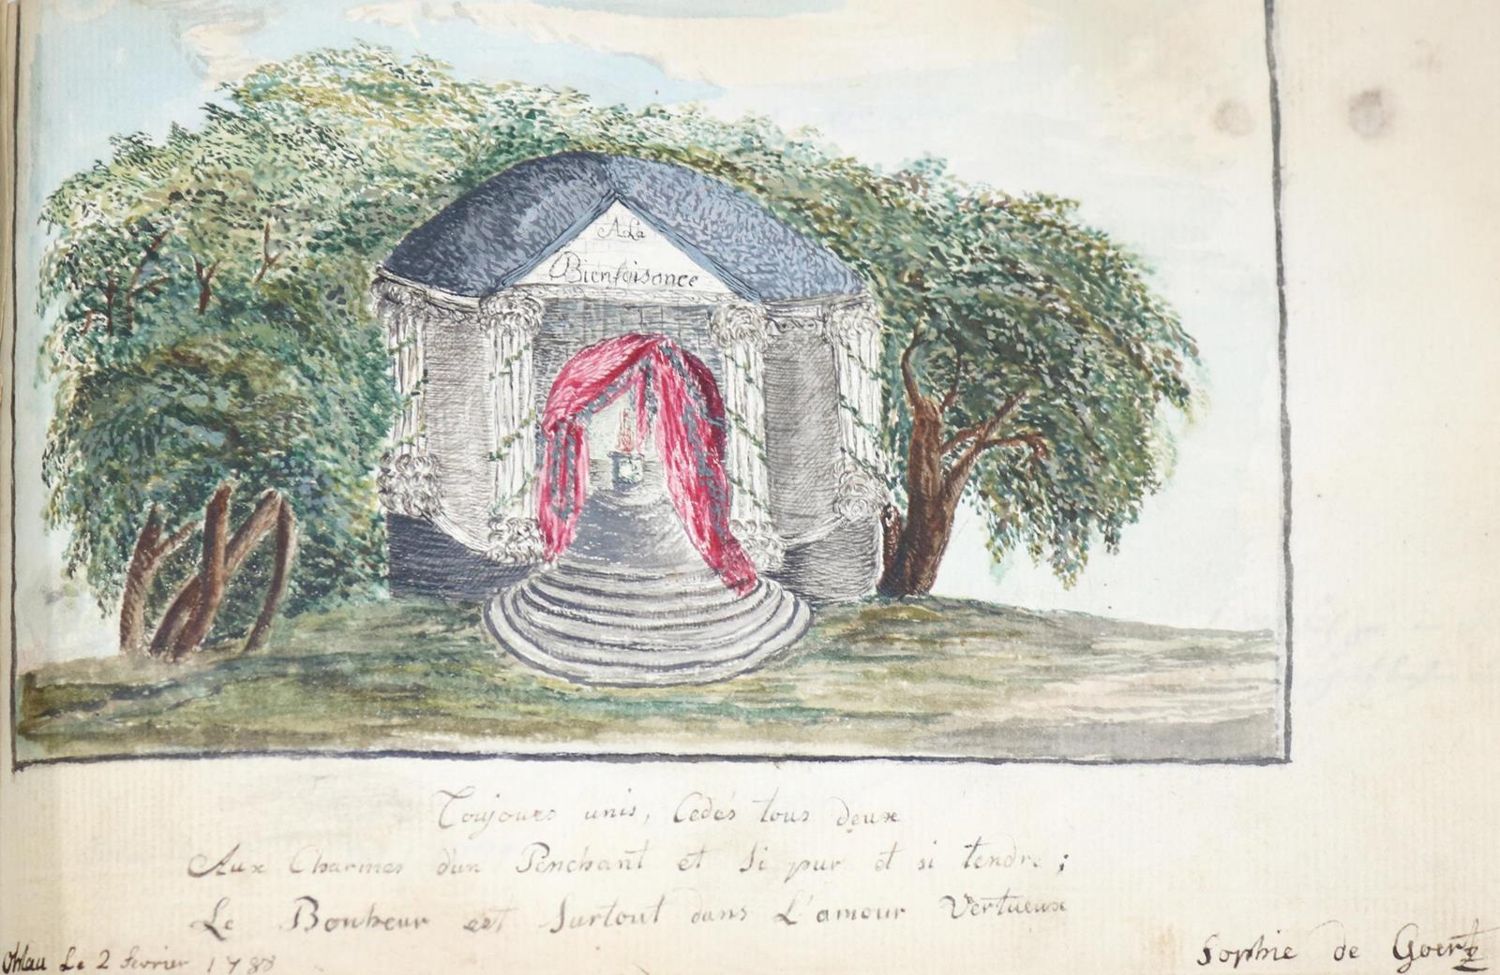 A La
Bienfaisance
Toujours unis, Cedés tous deux
Aux Charmes d'un Penchant et Si pur et si tendre;
Le Bonheur est Surtout dans L'amour Vertueux
Ohlau Le 2 fevrier 1788
Sophie de Goertz